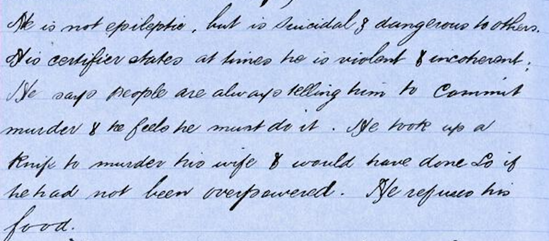 He is not epileptic, but is suicidal & dangerous to others.
His certifier states at times he is violent & incoherent;
He says people are always telling him to commit
murder & he feels he must do it. He took up a
Knife to murder his wife & would have done so if
he had not been overpowered. He refuses his
food.